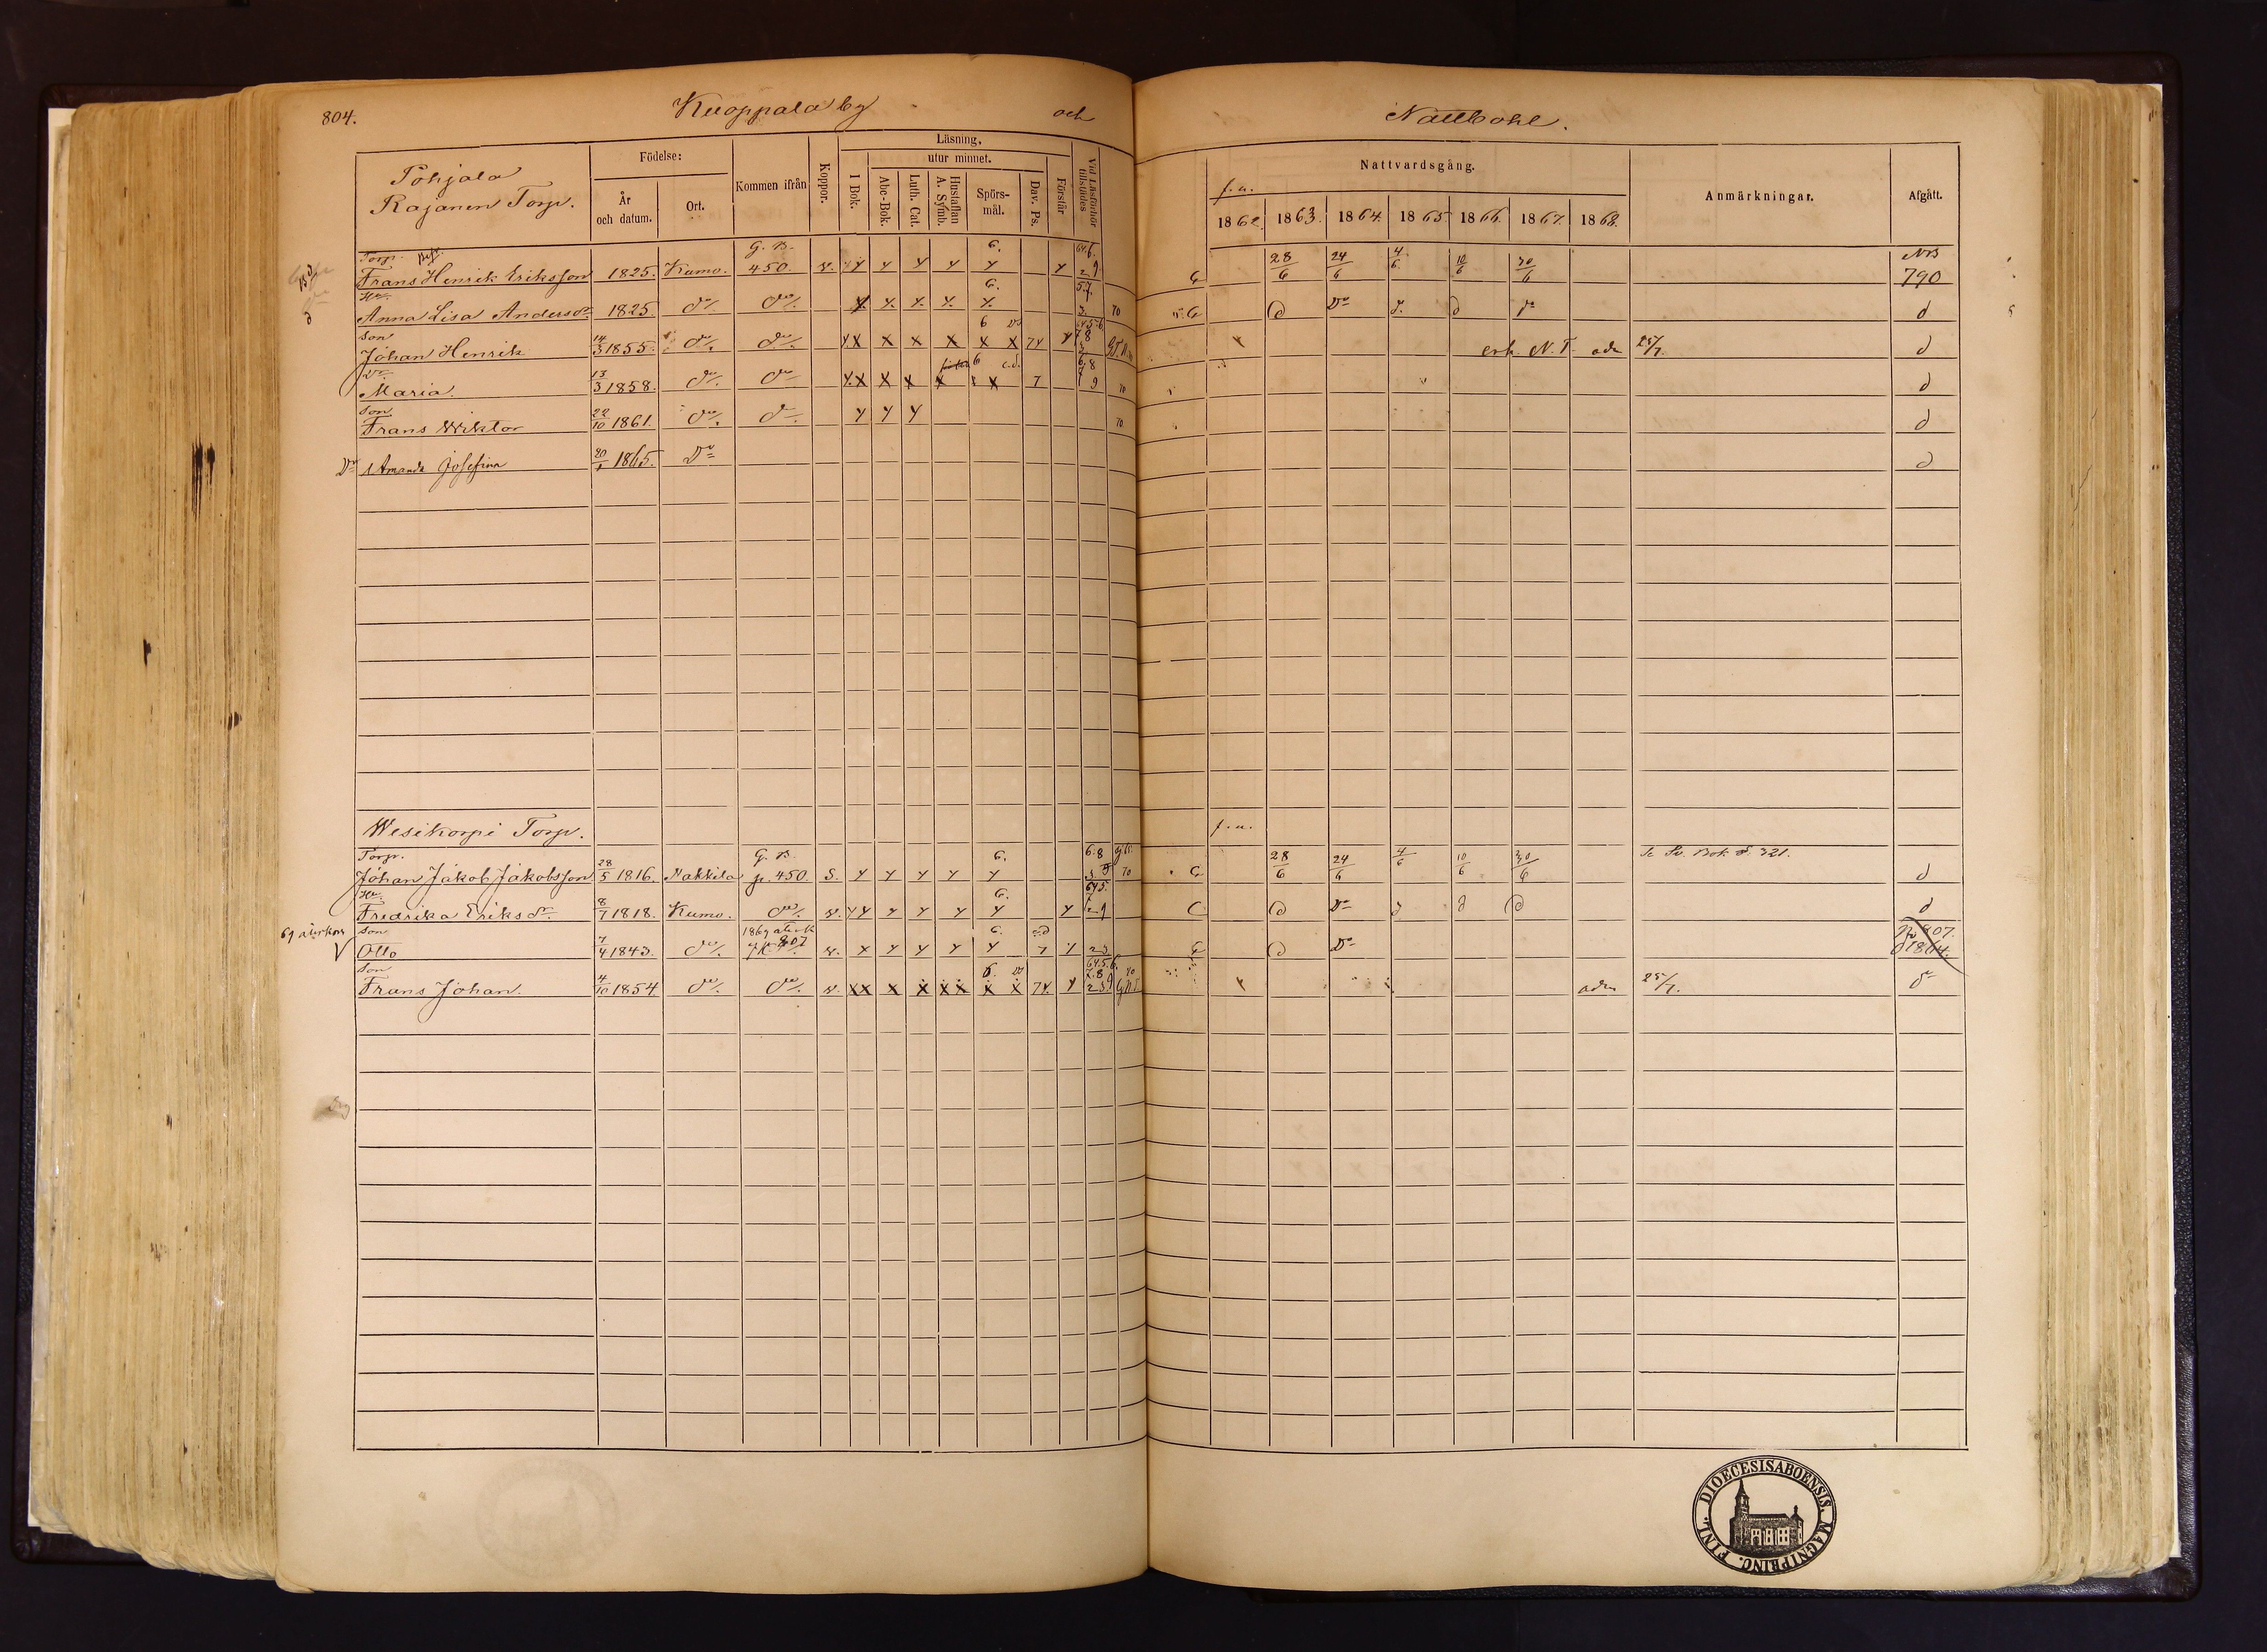 804.
Kuoppala by
och
Nattbohl.
Pohjala
Rajanen Torp.
Födelse:
År och datum.
Ort.
Kommen ifrån
Koppor.
Läsning,
utur minnet.
I Bok.
Abc-Bok.
Luth. Cat.
Hustaflan A. Symb.
Spörsmål.
Dav. Ps.
Förstår
Vid Läsförhör tillstädes
f.u.
Nattvardsgång.
1862. 1863. 1864. 1865 1866. 1867. 1868.
Anmärkningar.
Afgått.
Torp.
G. B.
6.
Frans Henrik Eriksson 1825. Kumo. 450. v. y y y y y y
28/6 24/6 4/6 10/6 30/6
NB
790
Hu.
6.
Anna Lisa Andersdr 1825. do do x x x x x
70
do
d
Son
6
Johan Henrik 14/3 1855. do do x x x x x x
erh. N. T. adm 25/7.
d
Dr
6 c.d.
Maria 13/3 1858. do do x x x x x x 7
70
d
Son
Frans Wiktor 22/10 1861. do do y y y
70
d
Dr Amanda Josefina 20/1 1865. do
d
Wesikorpi Torp.
f.u.
Torpr.
G. B.
6.
6.8
Johan Jakob Jakobsson 28/5 1816. Nakkila p. 450. S. y y y y y
70
28/6 24/6 4/6 10/6 30/6
Se Sv. Bok. S. 321.
d
Hu.
6.
645.
Fredrika Eriksdr 8/7 1818. Kumo. do v. y y y y y y
do
d
69 återkom
Son
1869
807
6. c.d
Otto 7/4 1843. do v. y y y y y 7 y 23
do
807.
1864.
Son
6.
645.6.
7.8
70
Frans Johan. 4/10 1854 do do v. x x x x x x x x y
adm 25/7.
do
DIOECESIS ABOENSIS. MAGNI PRINC. FINL.